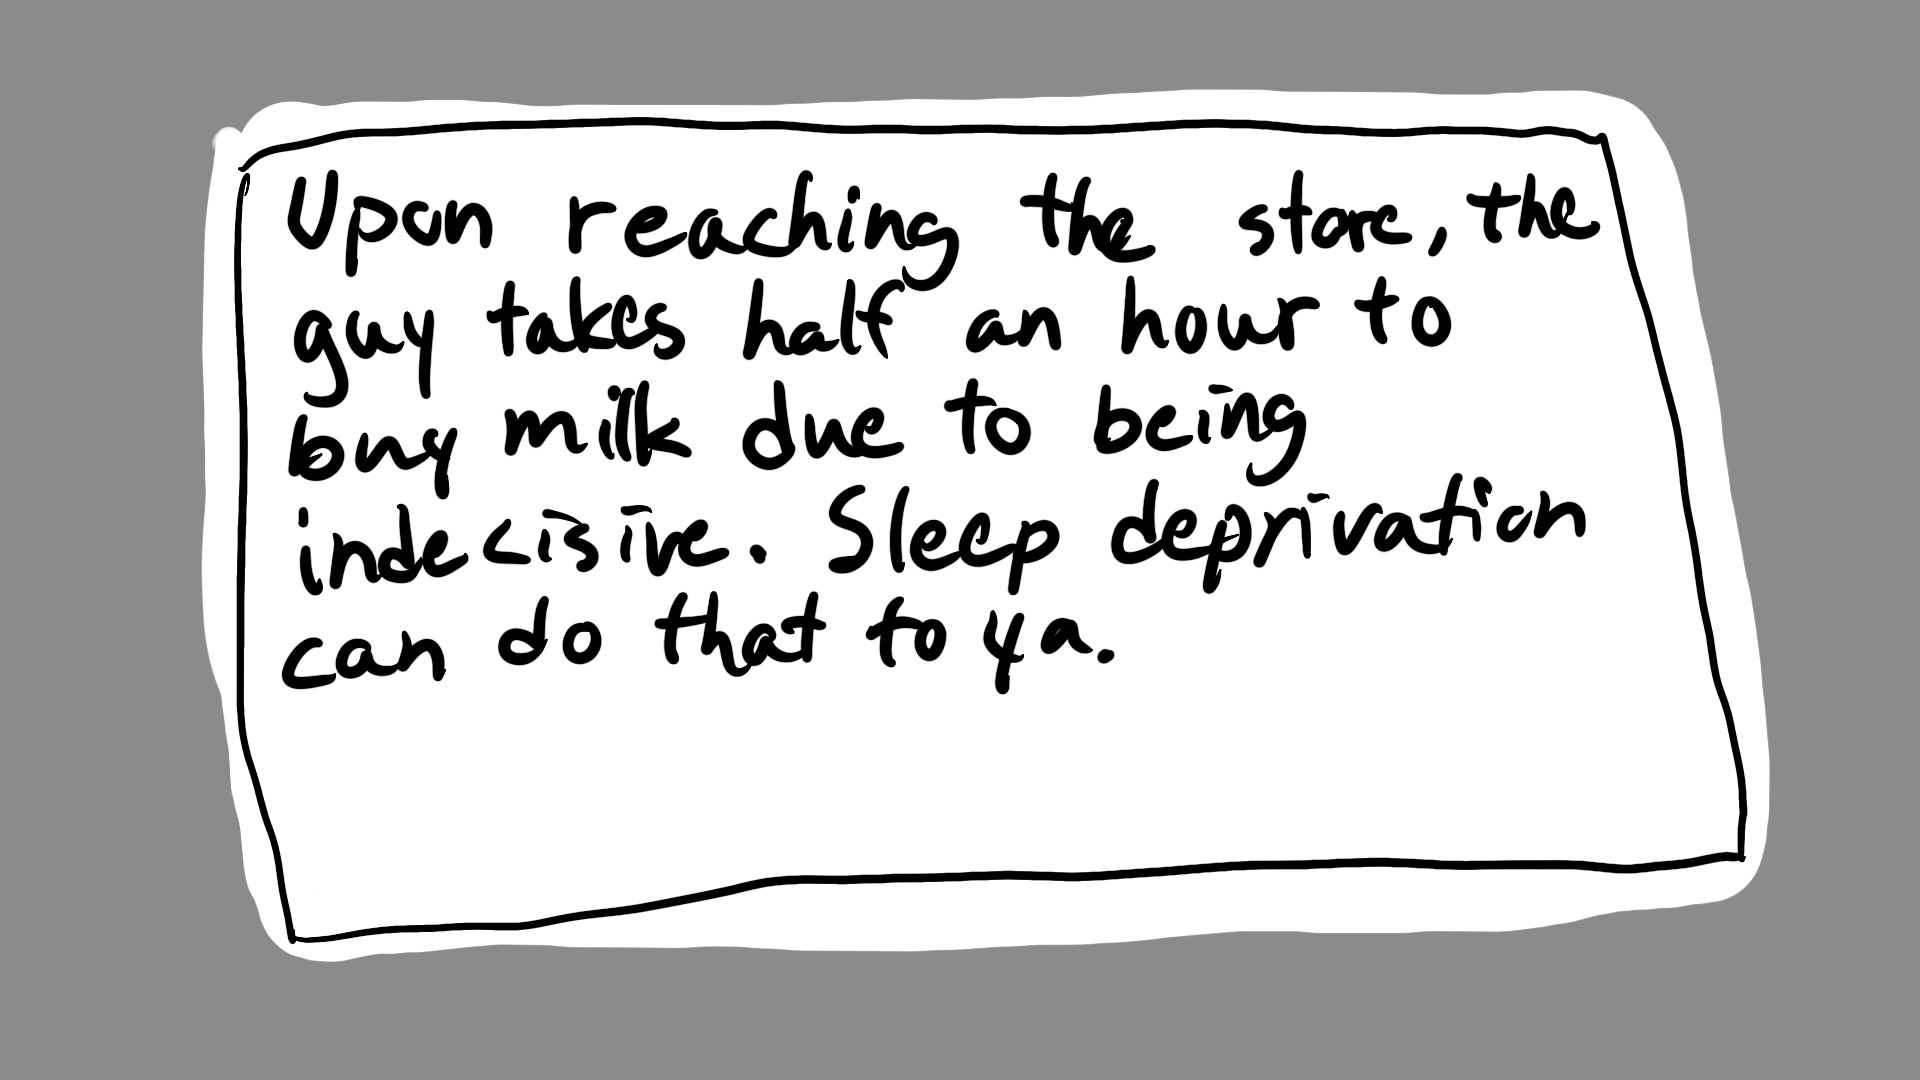 Upon reaching the store, the
guy takes half an hour to
buy milk due to being
indecisive. Sleep deprivation
can do that to ya.